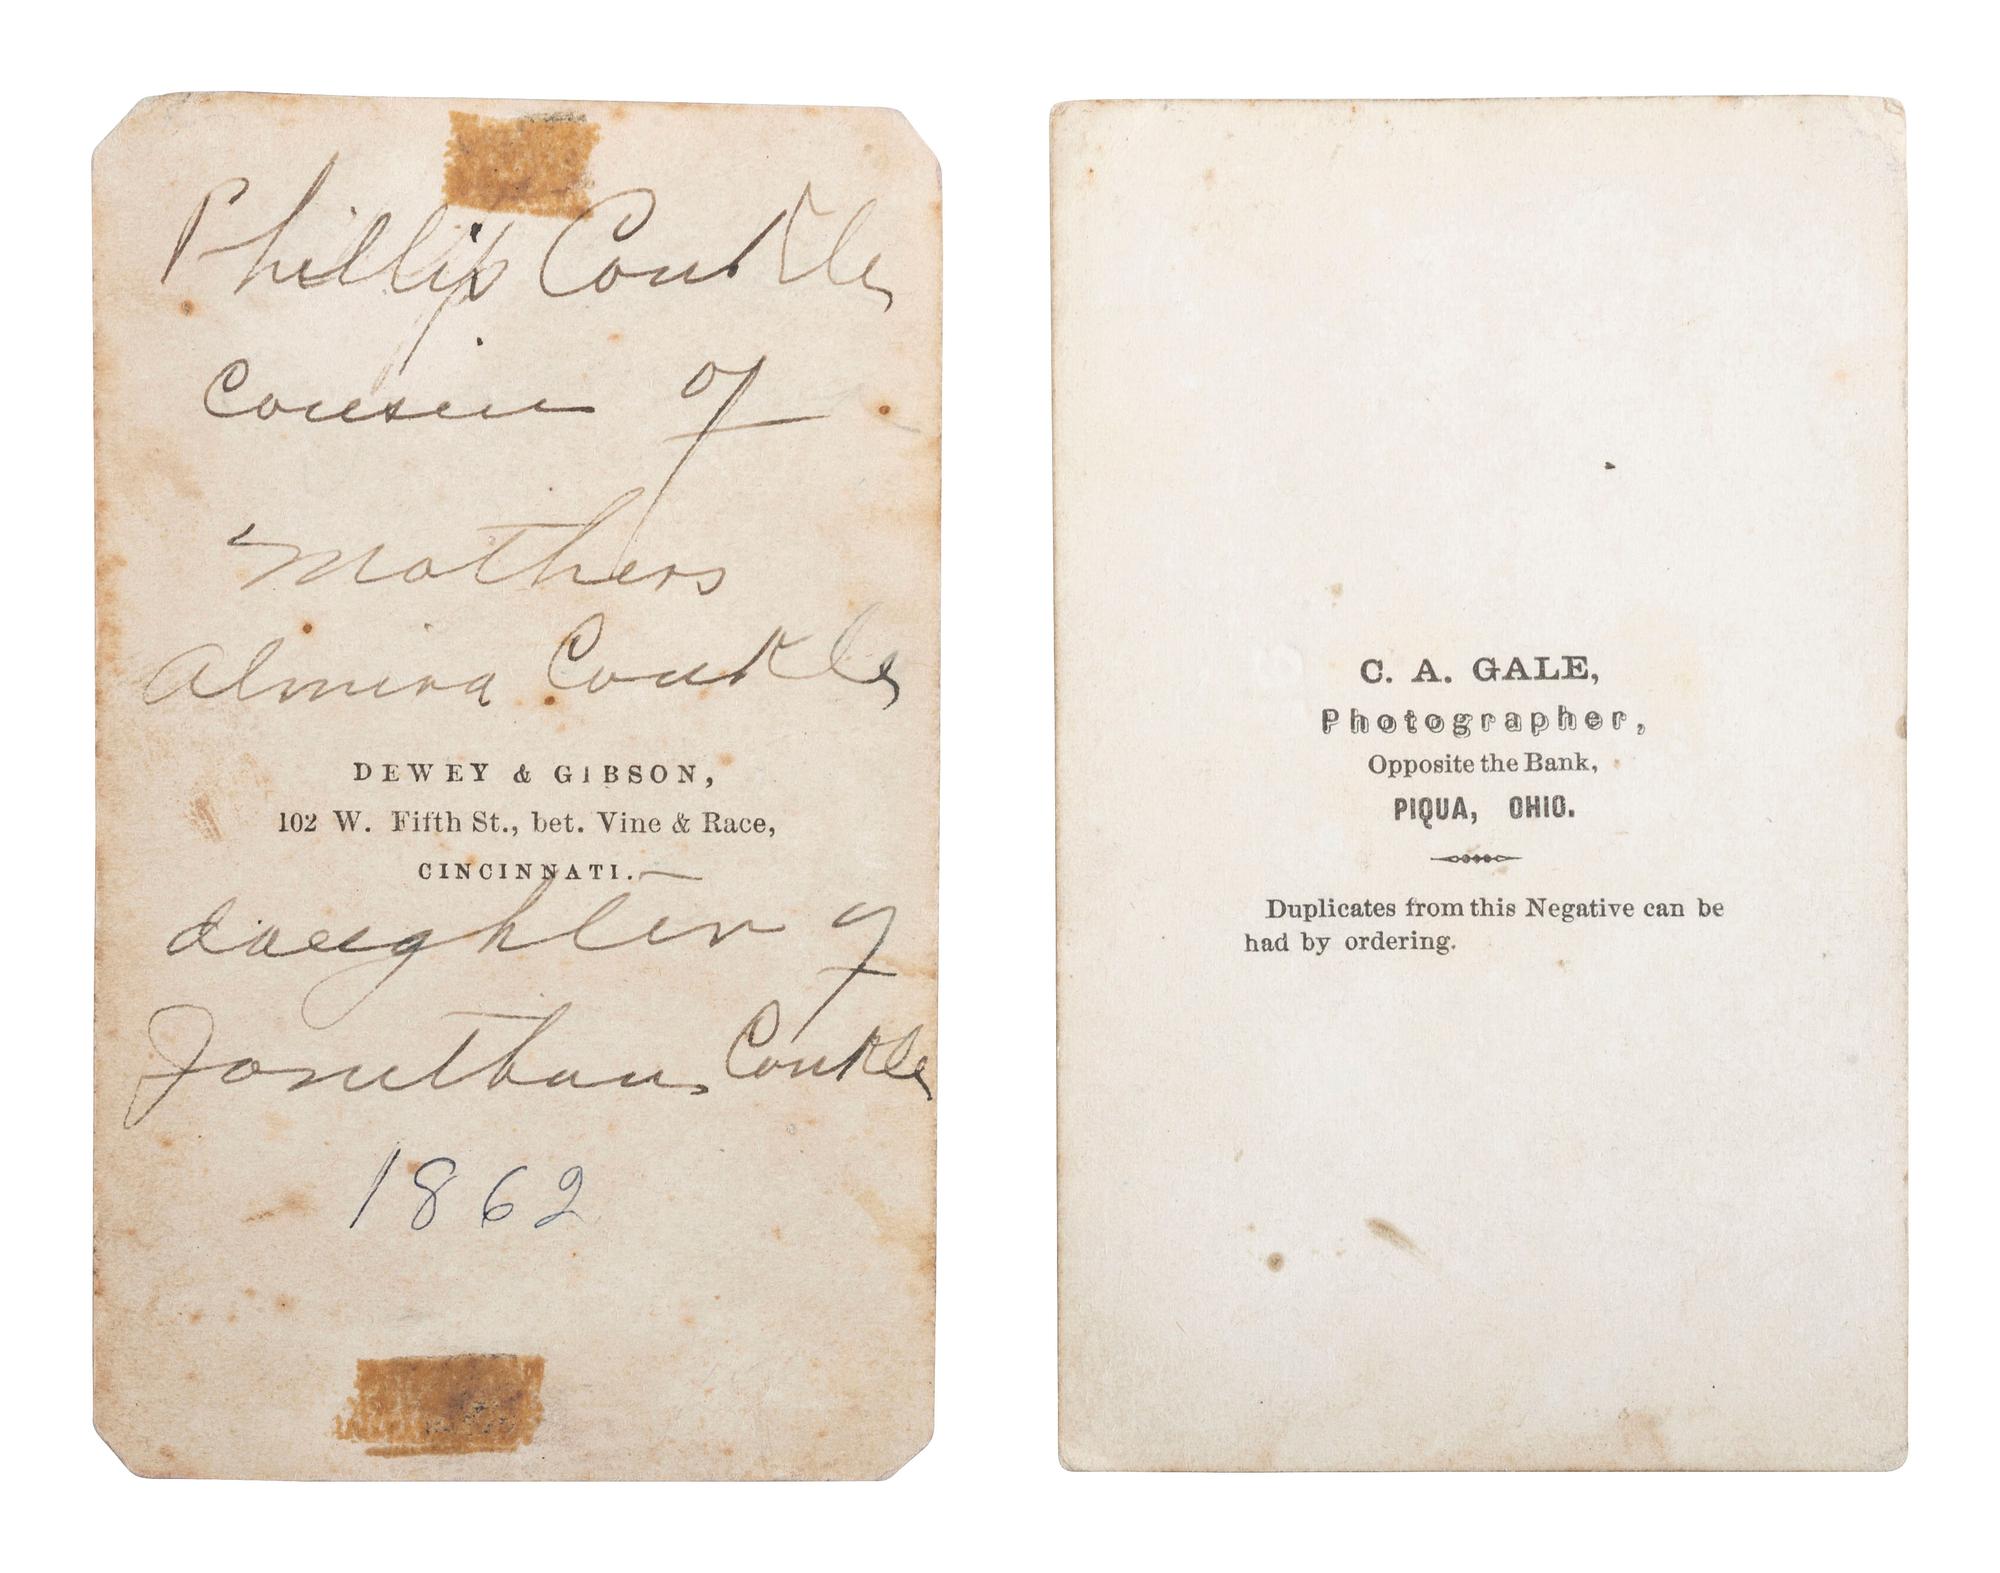 Phillip Conkle
Cousin of
Mothers
Almira Conkle
DEWEY & GIBSON,
102 W. Fifth St., bet. Vine & Race,
CINCINNATI.
daughter of
Jonathan Conkle
1862
C. A. GALE,
Photographer,
Opposite the Bank,
PIQUA, OHIO.
Duplicates from this Negative can be
had by ordering.